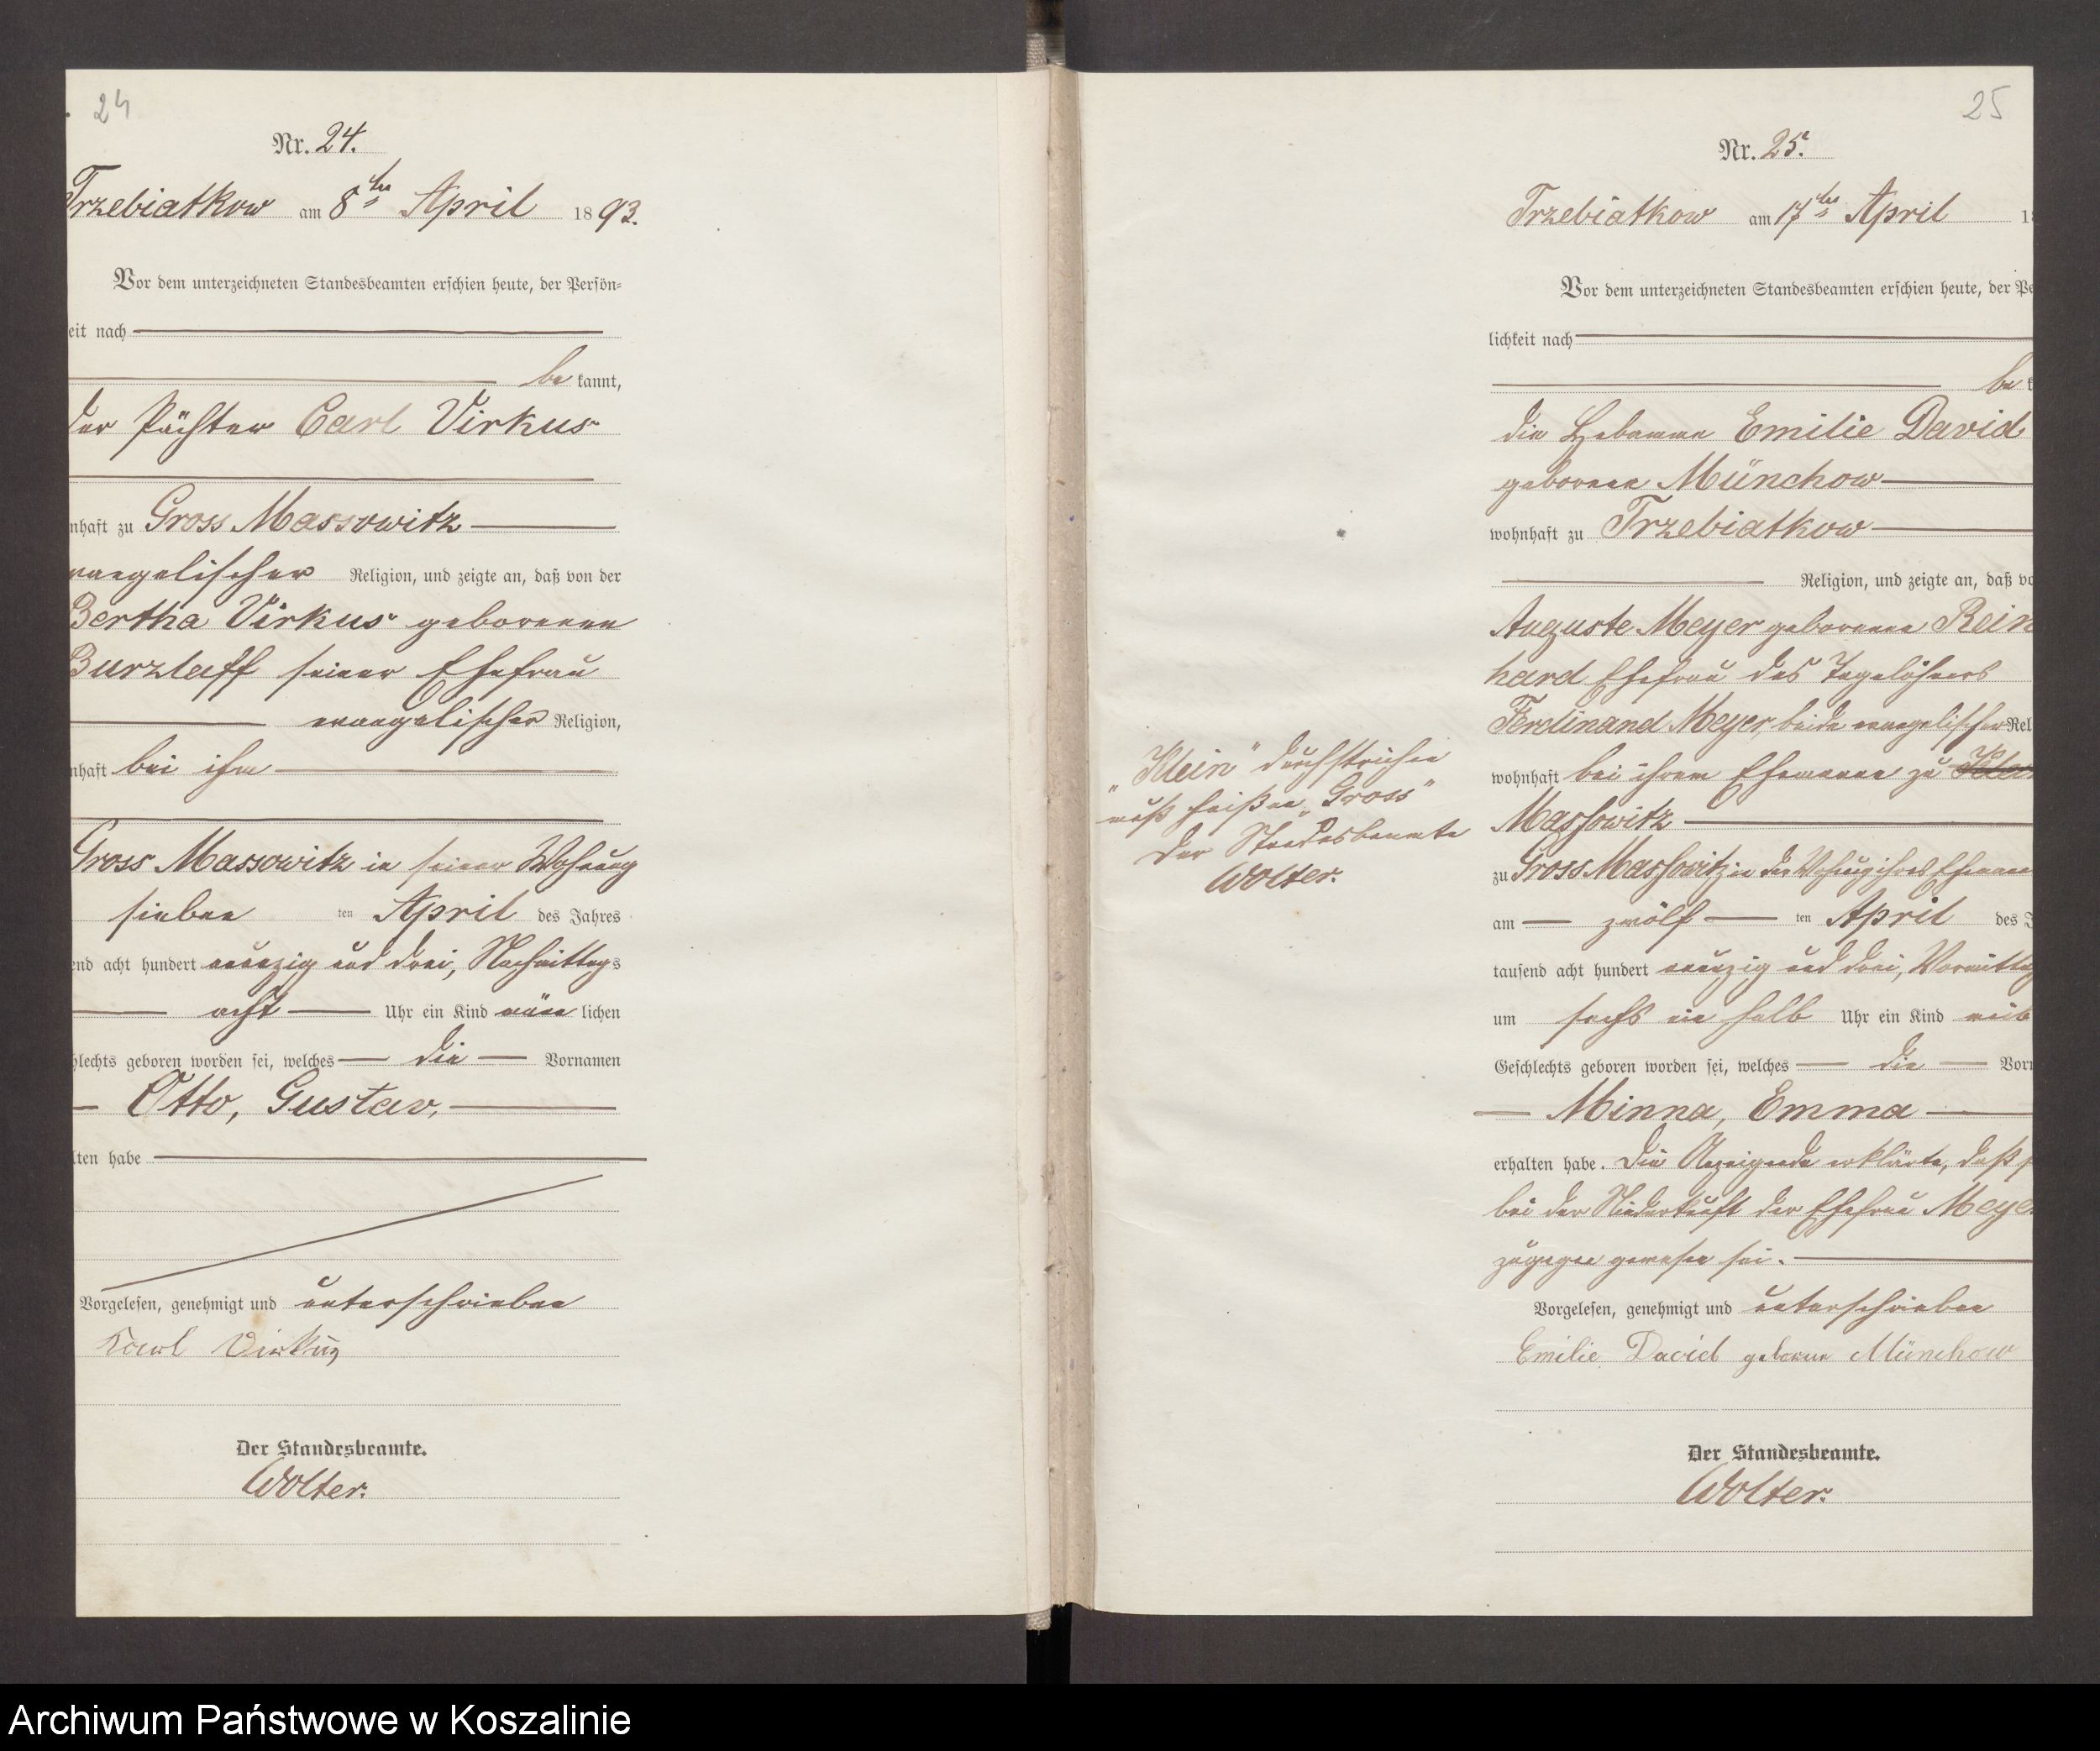 24
Nr. 24.
Trzebiatkow am 8ten April 1893.
Vor dem unterzeichneten Standesbeamten erschien heute, der Persön-
eit nach
be kannt,
der Pächter Carl Virkus
nhaft zu Gross Massowitz
vangelischer Religion, und zeigte an, daß von der
Bertha Virkus geborenen
Burzlaff seiner Ehefrau
evangelischer Religion,
nhaft bei ihm
Gross Massowitz in seiner Wohnung
sieben ten April des Jahres
end acht hundert neunzig und drei, Nachmittags
acht Uhr ein Kind männ lichen
hlechts geboren worden sei, welches die Vornamen
Otto, Gustav,
lten habe
Vorgelesen, genehmigt und unterschrieben
Karl Virkus
Der Standesbeamte.
Wolter.
25
Nr. 25.
Trzebiatkow am 17ten April 18
Vor dem unterzeichneten Standesbeamten erschien heute, der Pe
lichkeit nach
be k
die Hebamme Emilie David
geborene Münchow
wohnhaft zu Trzebiatkow
Religion, und zeigte an, daß vo
Auguste Meyer geborene Rein
hard Ehefrau des Tagelöhners
Ferdinand Meyer, beide evangelischer Rel
wohnhaft bei ihrem Ehemanne zu Klein
Massowitz
zu Gross Massowitz in der Wohnung ihres Ehemann
am zwölf ten April des J
tausend acht hundert neunzig und drei, Vormittag
um sechs ein halb Uhr ein Kind weib
Geschlechts geboren worden sei, welches die Vorn
Minna, Emma
erhalten habe. Die Anzeigende erklärte, daß s
bei der Niederkunft der Ehefrau Meyer
zugegen gewesen sei.
Vorgelesen, genehmigt und unterschrieben
Emilie David geborene Münchow
Der Standesbeamte.
Wolter.
„Klein" durchstrichen
muß heißen „Gross"
Der Standesbeamte
Wolter.
Archiwum Państwowe w Koszalinie